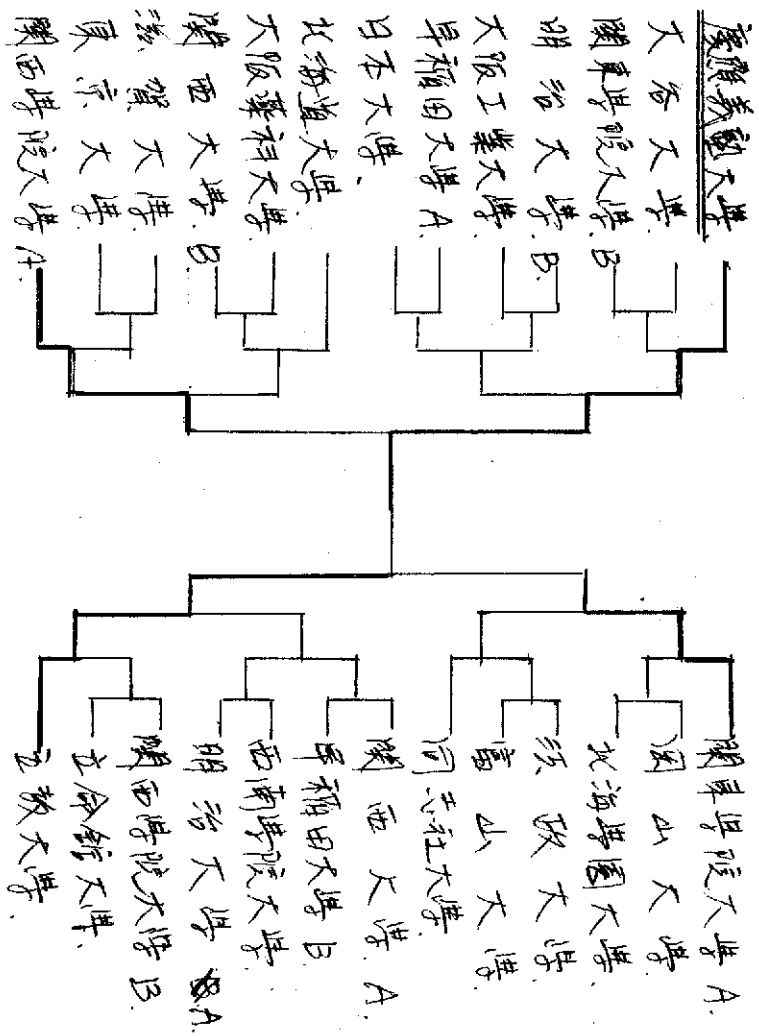 慶應義塾大學
大谷大學.
關東學院大學.B
明治大學.B.
大阪工業大學.
早稲田大學A.
日本大學.
北海道大學.
大阪薬科大學.
關西大學.B
滋賀大學.
東京大學.
關西學院大學A.
關東學院大學A.
岡山大學
北海學園大學.
法政大學.
富山大學.
同志社大學.
關西大學.A.
早稲田大學B
西南學院大學
明治大學A.
關西學院大學B.
立命館大學.
立教大學.